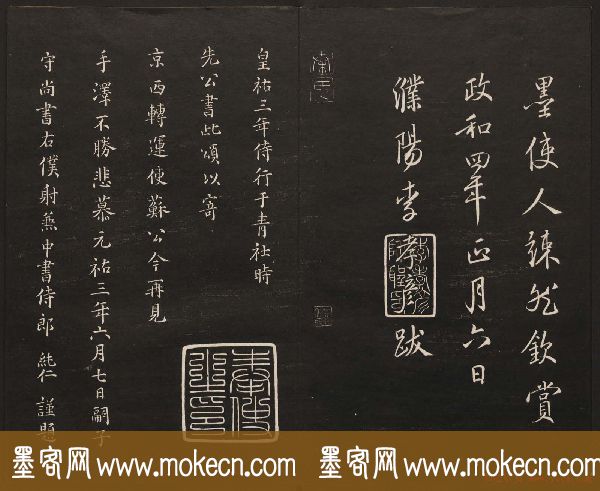 墨使人竦然欽賞
政和四年正月六日
濮陽李孝跋
皇祐三年侍行于青社時
先公書此頌以寄
京西轉運使蘇公今再見
手澤不勝悲慕元祐三年六月七日嗣子
守尚書右僕射兼中書侍郎 純仁 謹題
墨客网 www.mokecn.com 墨客网 www.mokecn.com